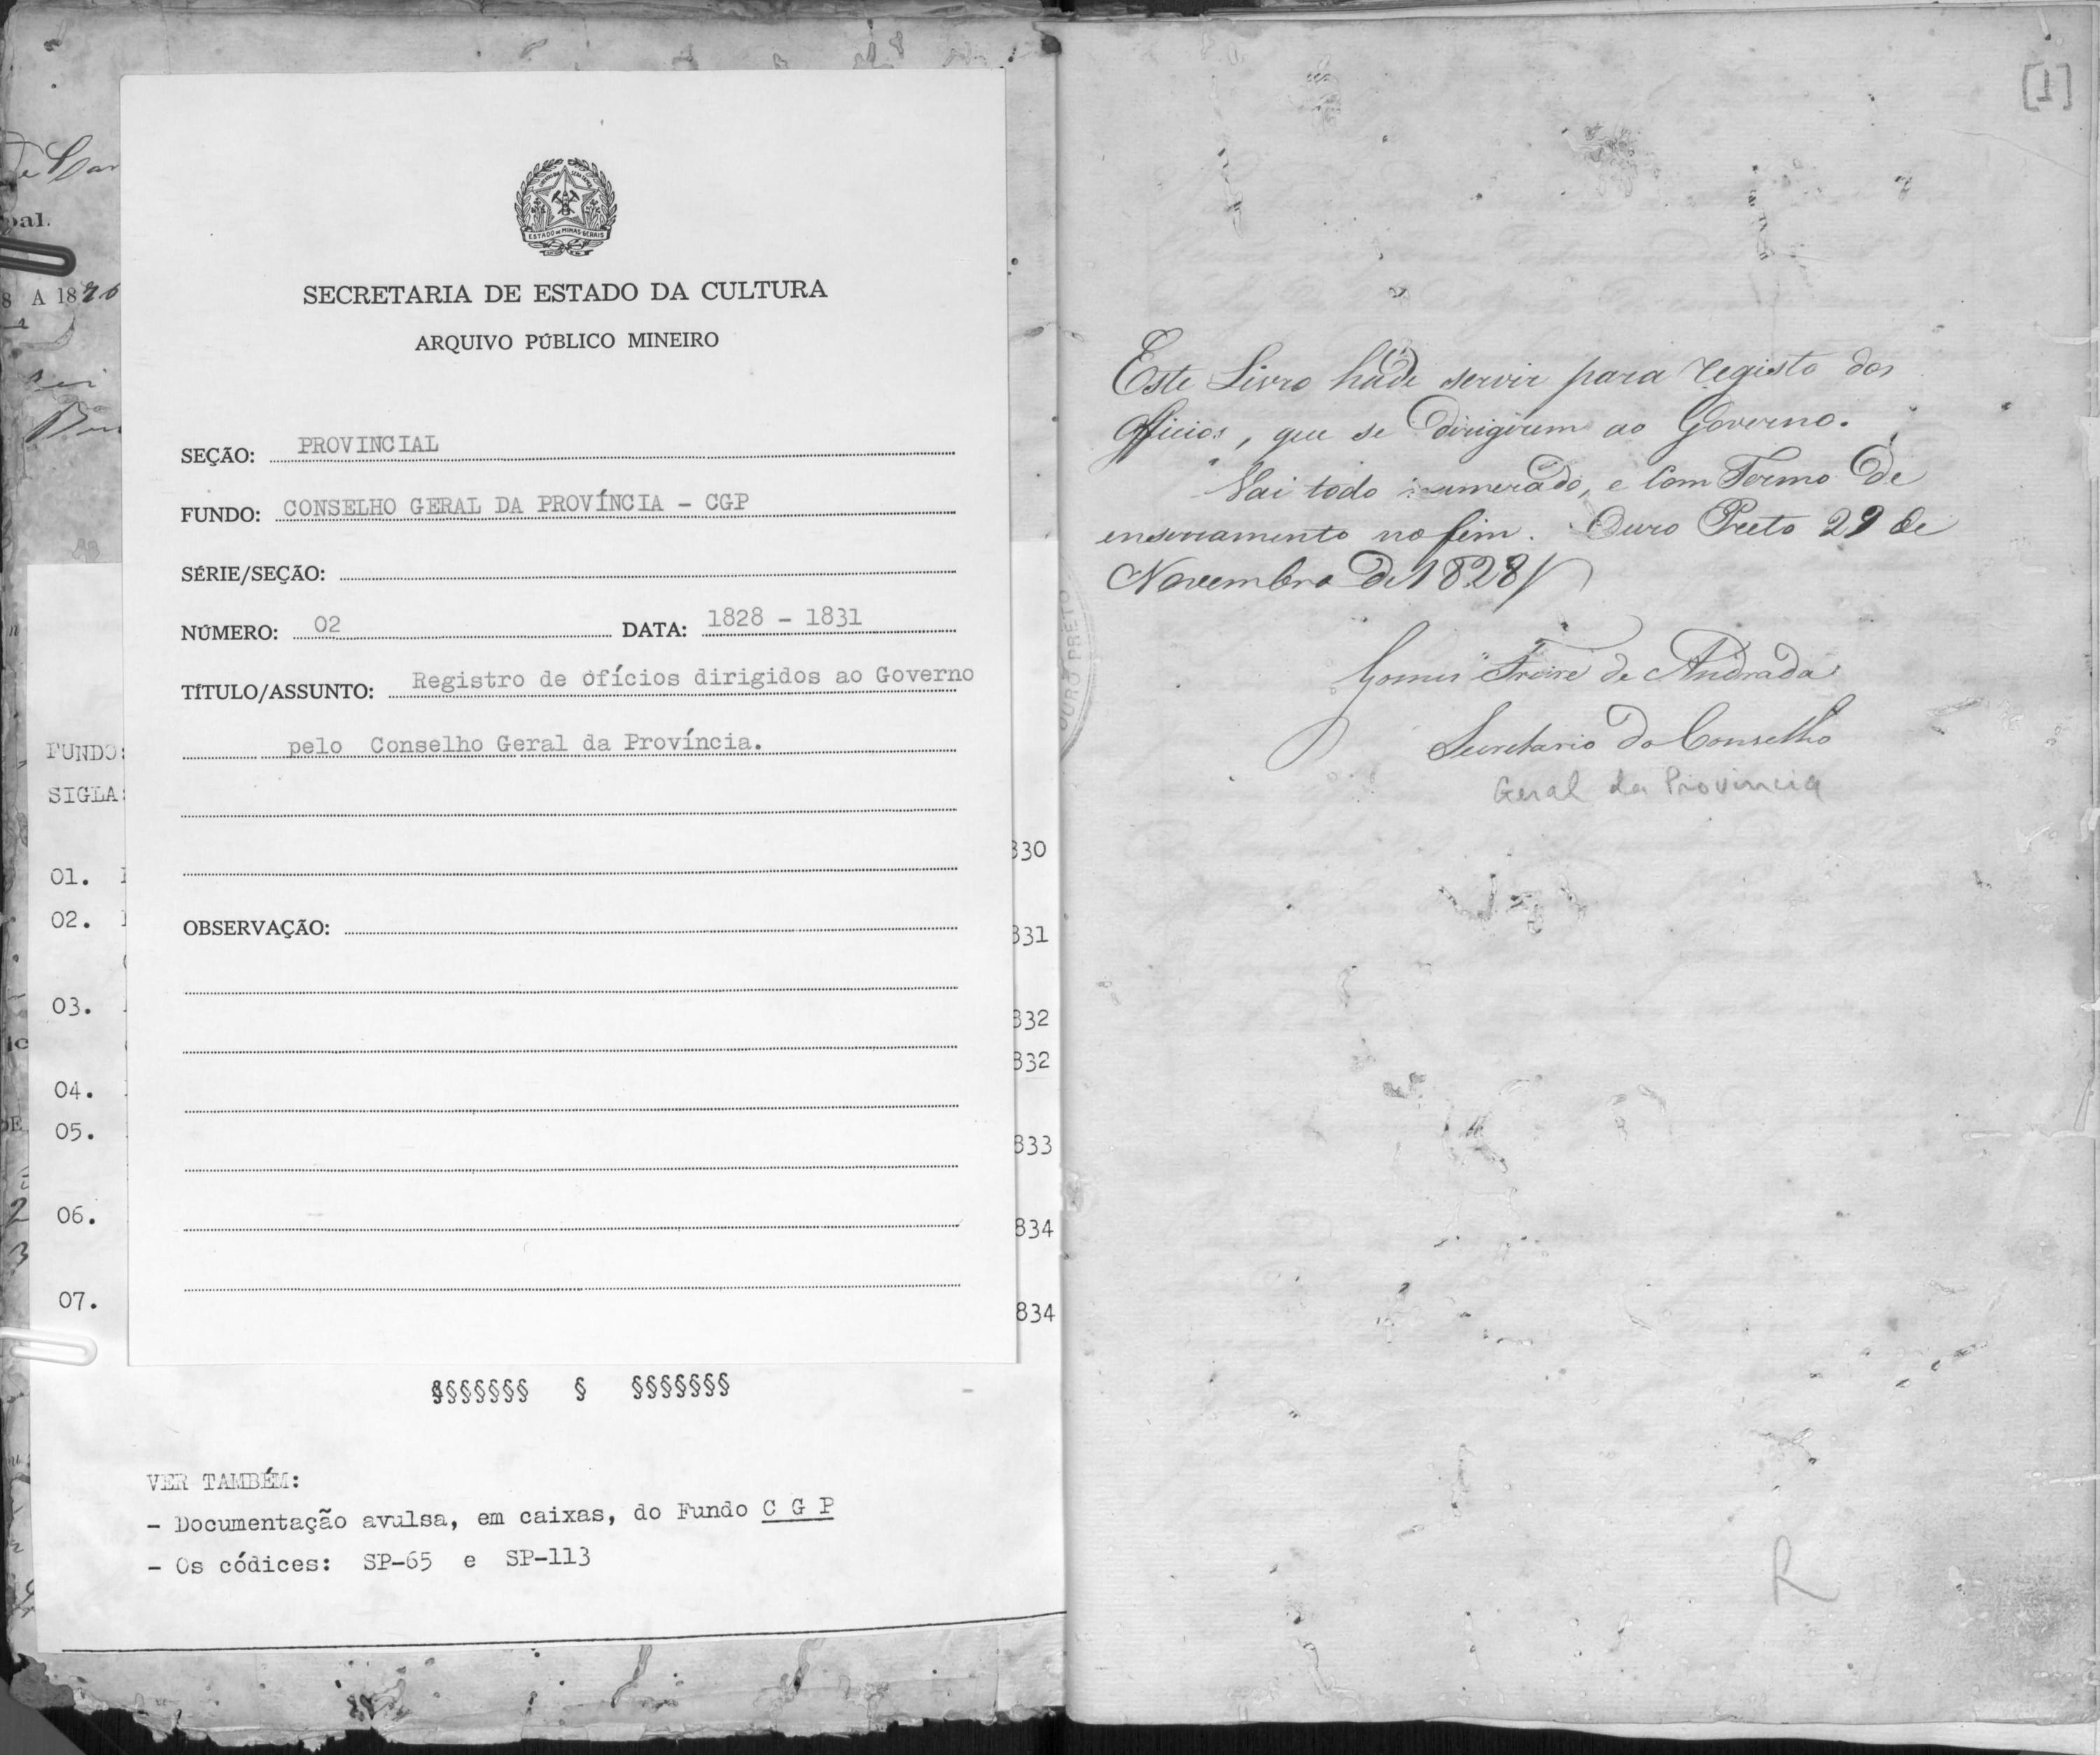 ESTADO DE MINAS GERAIS
SECRETARIA DE ESTADO DA CULTURA
ARQUIVO PÚBLICO MINEIRO
SEÇÃO: PROVINCIAL
FUNDO: CONSELHO GERAL DA PROVÍNCIA - CGP
SÉRIE/SEÇÃO:
NÚMERO: 02 DATA: 1828 - 1831
TÍTULO/ASSUNTO: Registro de ofícios dirigidos ao Governo
pelo Conselho Geral da Província.
OBSERVAÇÃO:
8 A 18
FUNDO:
SIGLA:
01.
02.
03.
04.
05.
06.
07.
830
831
832
832
833
834
834
§§§§§§§ § §§§§§§§
VER TAMBÉM:
- Documentação avulsa, em caixas, do Fundo C G P
- Os códices: SP-65 e SP-113
[1]
Este Livro hade servir para registo dos
Officios, que se dirigirem ao Governo.
Vai todo numerado, e com Termo de
enserramento no fim. Ouro Preto 29 de
Novembro de 1828
Gomes Freire de Andrada
Secretario do Conselho
Geral da Provincia
OURO PRETO
R